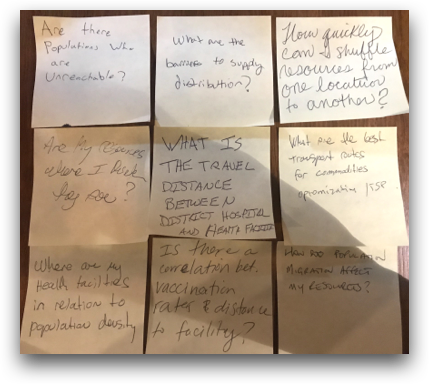 Are there
Populations who
are
Unreachable?
What are the
barriers to supply
distribution?
How quickly
can I shuffle
resources from
one location
to another?
Are My resources
where I
they are?
WHAT IS
THE TRAVEL
DISTANCE
BETWEEN
DISTRICT HOSPITAL
AND HEALTH FACILITY
What are the best
transport routes
for commodities
Where are my
Health facilities
in relation to
population density
Is there a
correlation bet.
vaccination
rates & distance
to facility?
HOW DO POPULATION
MIGRATION AFFECT
MY RESOURCES?